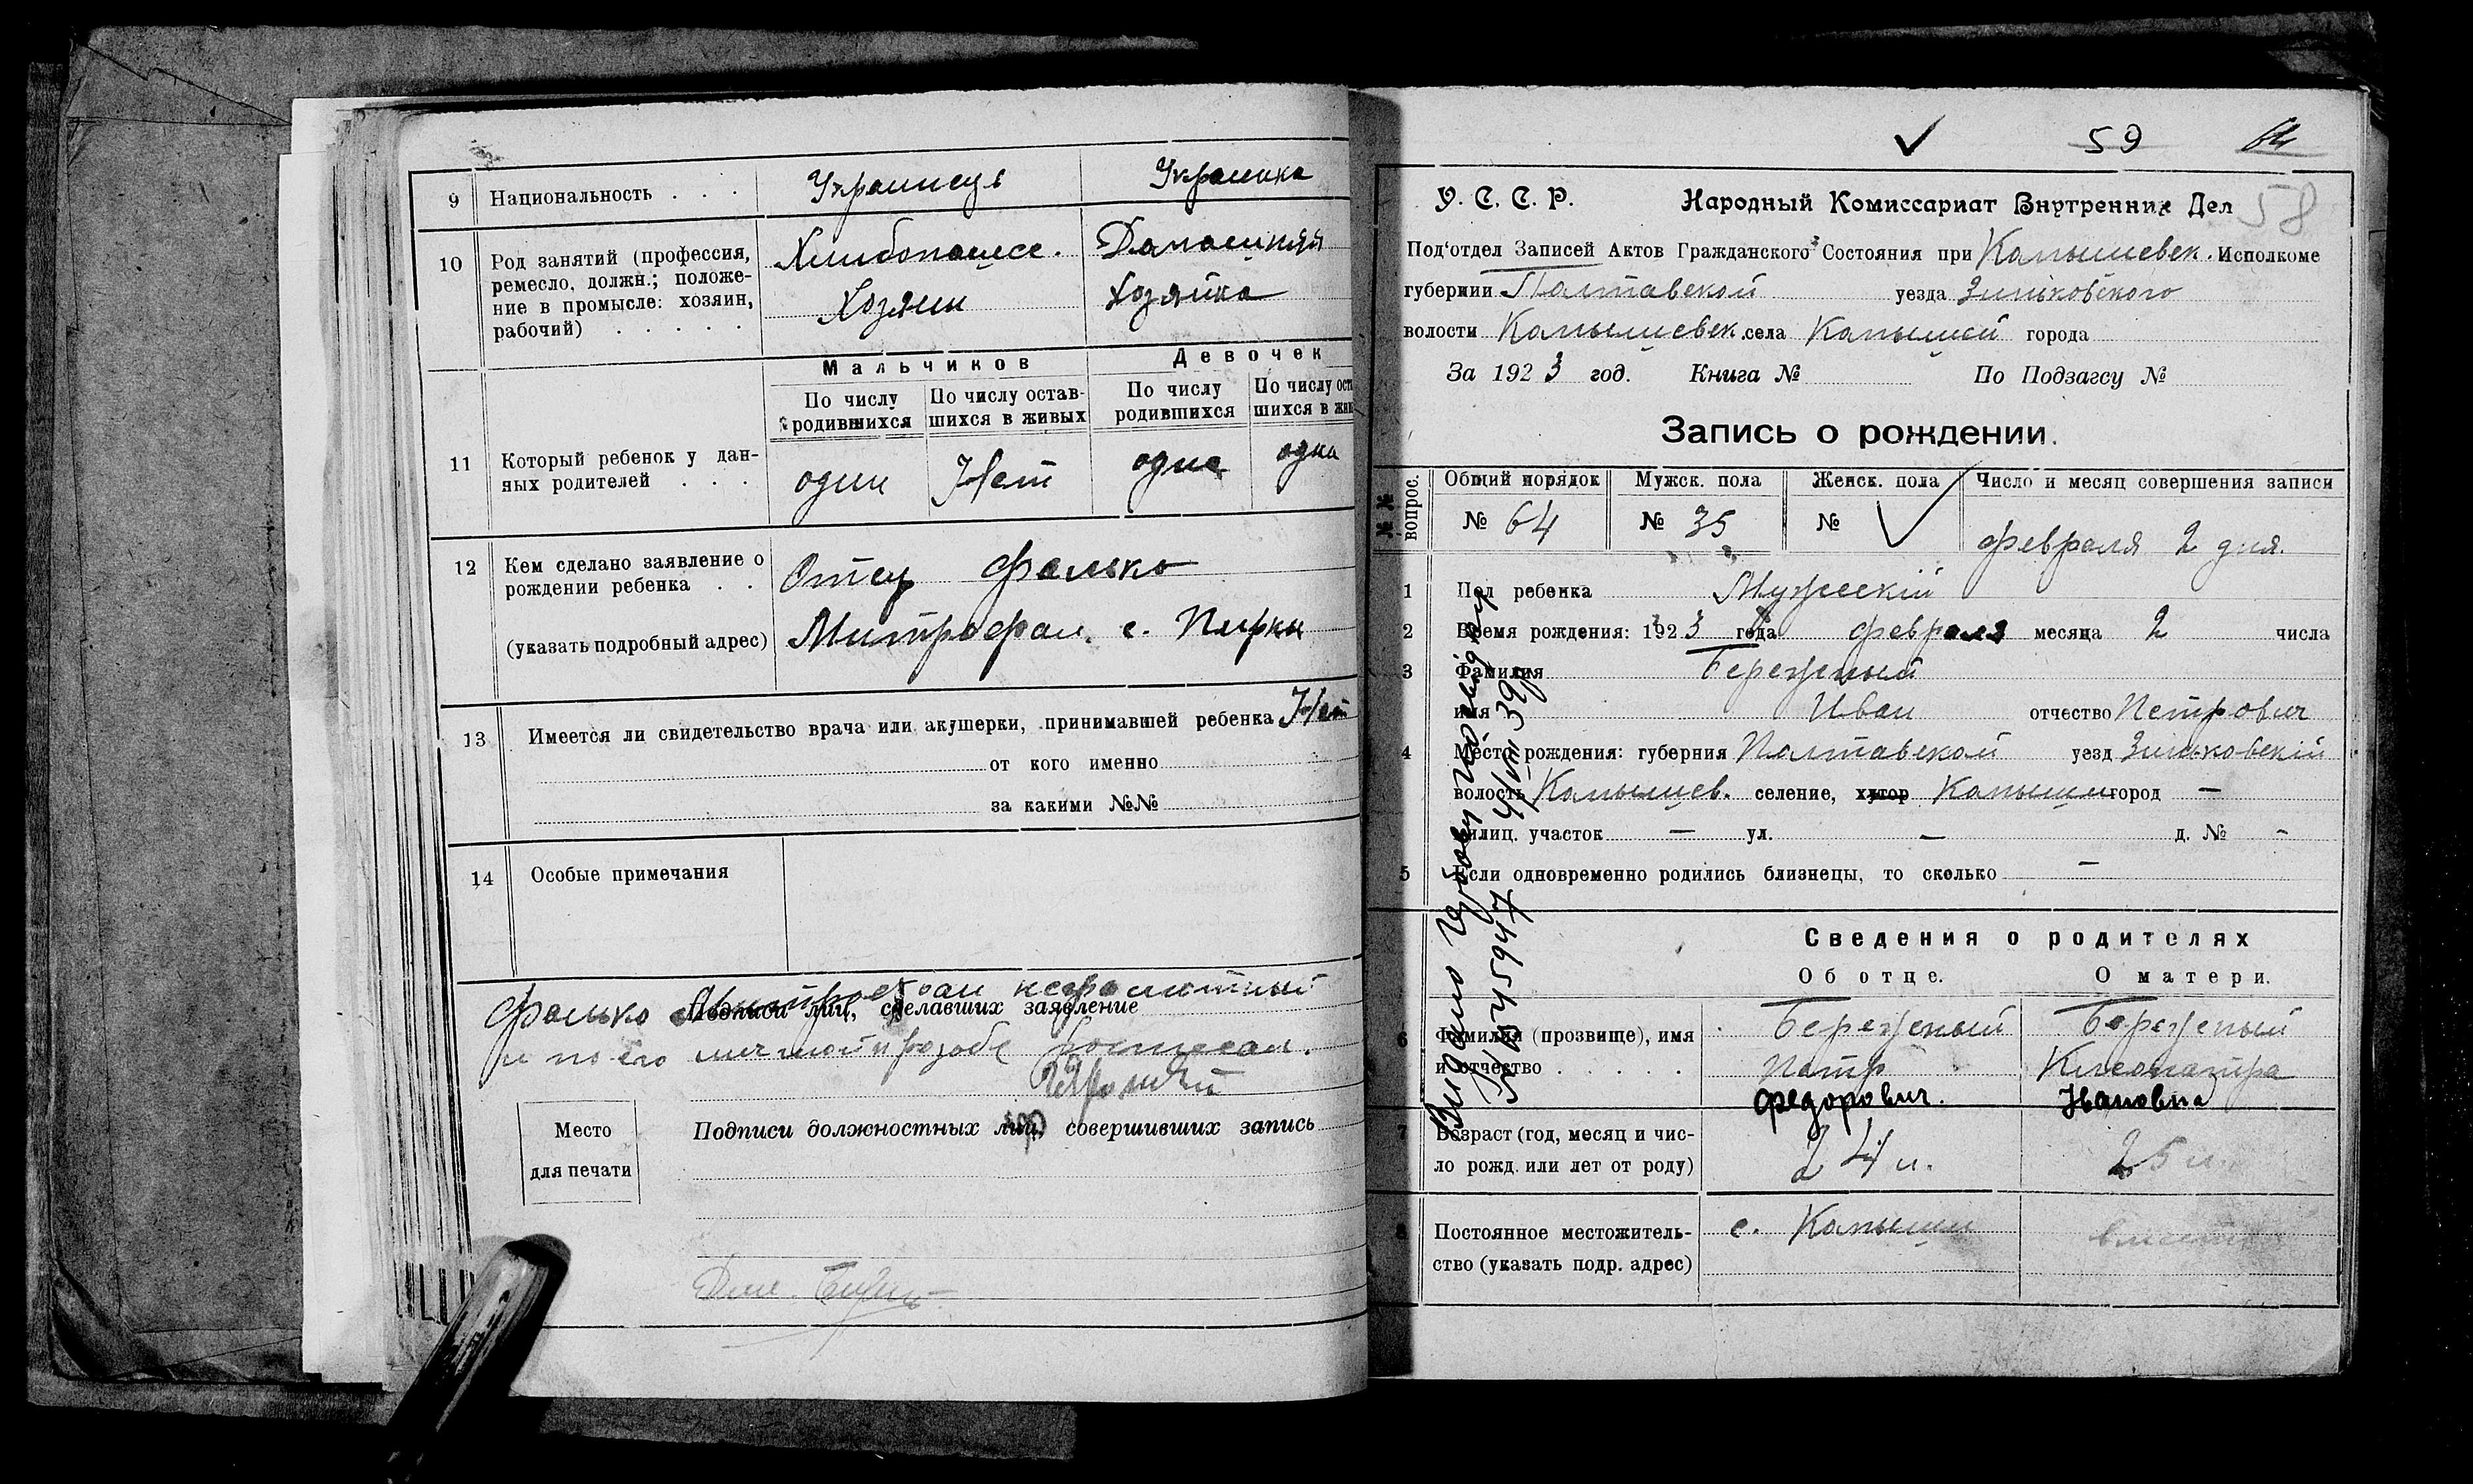 9 Национальность . . . Украинець Украинка
10 Род занятий (профессия, ремесло, должн.; положе-
ние в промысле: хозяин, рабочий) . . . . .
Хлибопашес. Домашняя
Хозяин Хозяйка
Мальчиков Девочек
По числу родившихся По числу остав-
шихся в живых По числу родившихся По числу ост
шихся в жив
11 Который ребенок у дан-
ных родителей . . . один Нет одна одна
12 Кем сделано заявление о
рождении ребенка . . Отец Фалько
(указать подробный адрес) Митрофан. с. Пирки
13 Имеется ли свидетельство врача или акушерки, принимавшей ребенка Нет
от кого именно
за какими №№
14 Особые примечания
Фалько Митрофан неграмотный
Подписи лиц, сделавших заявление
и по его личной прозбе
Подписи должностных лиц, совершивших запись
Место
для печати
59 64
58
У. С. С. Р. Народный Комиссариат Внутренних Дел
Под'отдел Записей Актов Гражданского Состояния при Камышевск. Исполкоме
губернии Полтавской уезда Зиньковского
волости Камышевск. села Камышей города
За 1923 год. Книга № По Подзагсу №
Запись о рождении.
№№ вопрос. Общий порядок Мужск. пола Женск. пола Число и месяц совершения записи
№ 64 № 35 № Февраля 2 дня.
1 Пол ребенка Мужескій
2 Время рождения: 1923 года февраля месяца 2 числа
3 Фамилия Бережный
имя Иван отчество Петрович
4 Место рождения: губерния Полтавской уезд Зиньковскій
волость Камышев. селение, хутор Камыши город —
милиц. участок — ул. — д. № -
5 Если одновременно родились близнецы, то сколько —
Сведения о родителях
Об отце. О матери.
6 Фамилия (прозвище), имя
и отчество . . . . .
Бережный Бережный
Петр Клеопатра
Федорович. Ивановна
7 Возраст (год, месяц и чис-
ло рожд. или лет от роду) 24 л. 25 л.
8 Постоянное местожитель-
ство (указать подр. адрес) с. Камыши вместе
Видано